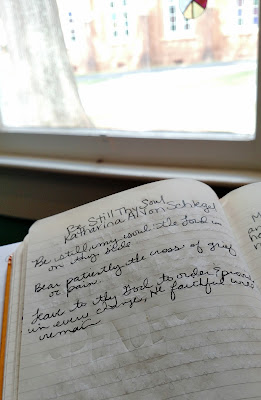 Be Still Thy Soul
Katharina A. Von Schlegel
Be still, my soul: the Lord is
on thy side
Bear patiently the cross of grief
or pain.
Leave to thy God to order & provide
in every change, He faithful will
remain